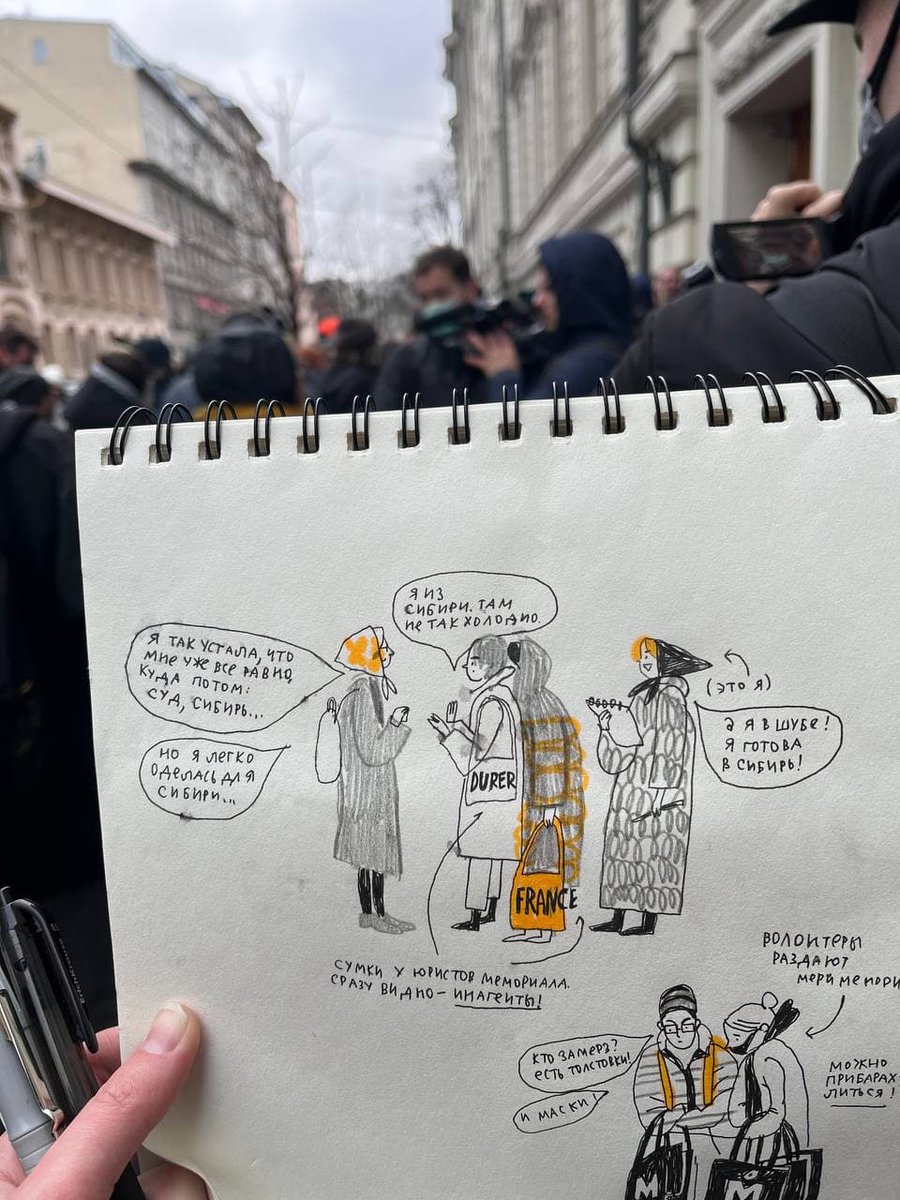 Я ТАК УСТАЛА, ЧТО
МНЕ УЖЕ ВСЕ РАВНО,
КУДА ПОТОМ:
СУД, СИБИРЬ...
НО Я ЛЕГКО
ОДЕЛАСЬ ДЛЯ
СИБИРИ...
Я ИЗ
СИБИРИ. ТАМ
НЕ ТАК ХОЛОДНО.
(ЭТО Я)
А Я В ШУБЕ!
Я ГОТОВА
В СИБИРЬ!
DURER
FRANCE
СУМКИ У ЮРИСТОВ МЕМОРИАЛА.
СРАЗУ ВИДНО – ИНАГЕНТЫ!
ВОЛОНТЕРЫ
РАЗДАЮТ
МЕРЧ МЕМОРИ
КТО ЗАМЕРЗ?
ЕСТЬ ТОЛСТОВКИ!
И МАСКИ!
МОЖНО
ПРИБАРАХ-
ЛИТЬСЯ!
М
М